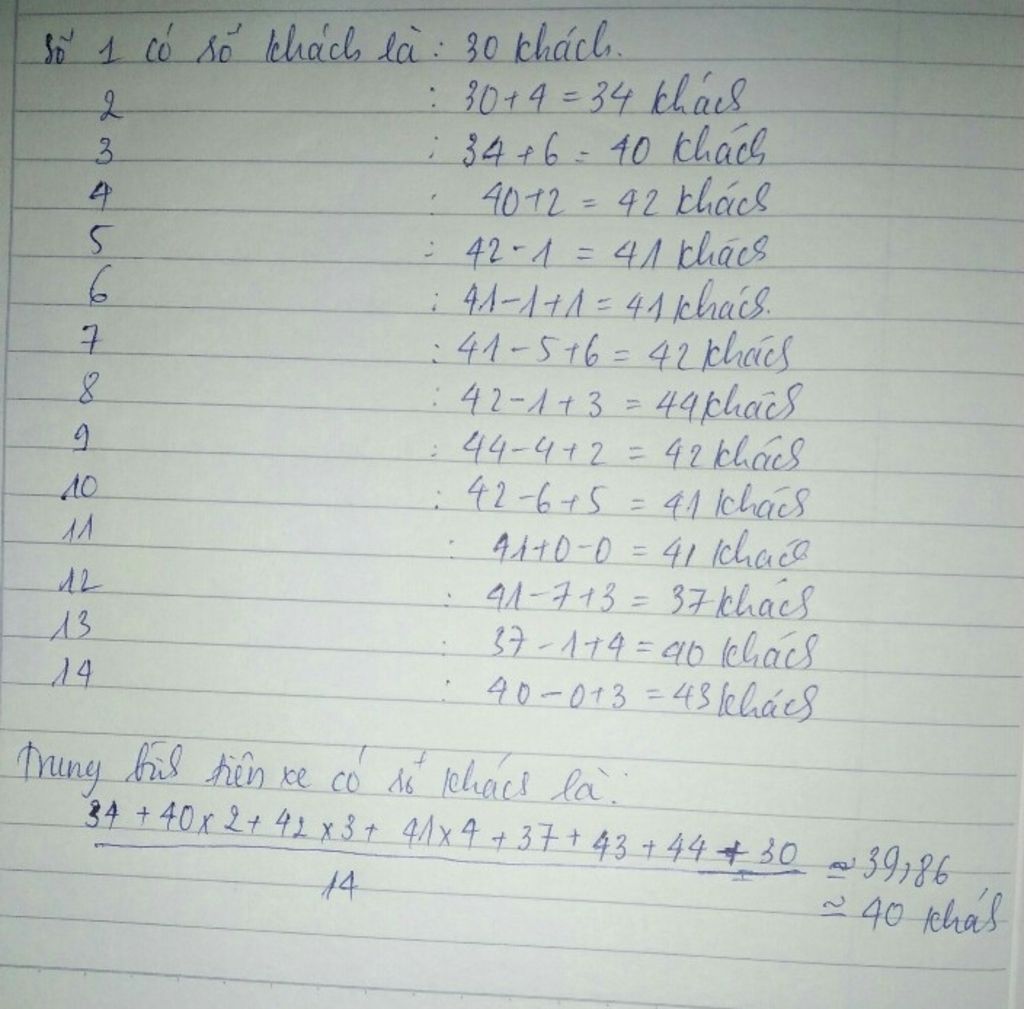 Số 1 có số khách là : 30 khách.
2 : 30 + 4 = 34 khách
3 : 34 + 6 = 40 khách
4 : 40 + 2 = 42 khách
5 : 42 - 1 = 41 khách
6 : 41 - 1 + 1 = 41 khách.
7 : 41 - 5 + 6 = 42 khách
8 : 42 - 1 + 3 = 44 khách
9 : 44 - 4 + 2 = 42 khách
10 : 42 - 6 + 5 = 41 khách
11 : 41 + 0 - 0 = 41 khách
12 : 41 - 7 + 3 = 37 khách
13 : 37 - 1 + 4 = 40 khách
14 : 40 - 0 + 3 = 43 khách
Trung bình trên xe có số khách là:
34 + 40 x 2 + 42 x 3 + 41 x 4 + 37 + 43 + 44 + 30 ≈ 39,86
14
≃ 40 khách